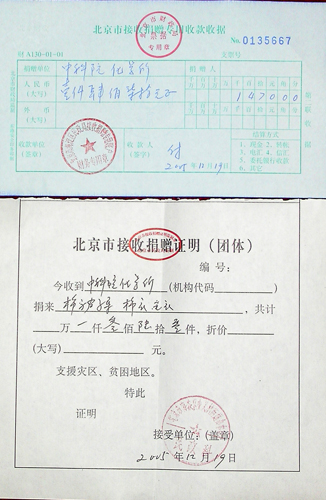 北京市接收捐赠专用收款收据
财 A130-01-01
No 0135667
捐赠单位 中科院化学所 捐赠人
人民币(大写) 壹仟肆佰柒拾元正 147000
外币(大写)
收款单位(盖章) 收款人(签字) 付
2005年12月19日
结算方式
1、现金 2、转账
3、电汇 4、信汇
5、委托银行收款
6、其它
北京市接收捐赠证明(团体)
编号:
今收到 中科院化学所 (机构代码 )
捐来 棉被 棉衣 毛衣 ,共计
万一仟叁佰陆拾叁件,折价
(大写) 元。
支援灾区、贫困地区。
特此
证明
接受单位:(盖章)
2005年12月19日